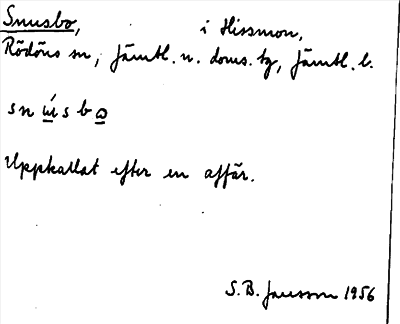 Snusbo, i Hissmon,
Rödöns sn, Jämtl. n. doms. tg, Jämtl. l.
snú̲sbo̲
Uppkallat efter en affär.
S.B. Jansson 1956